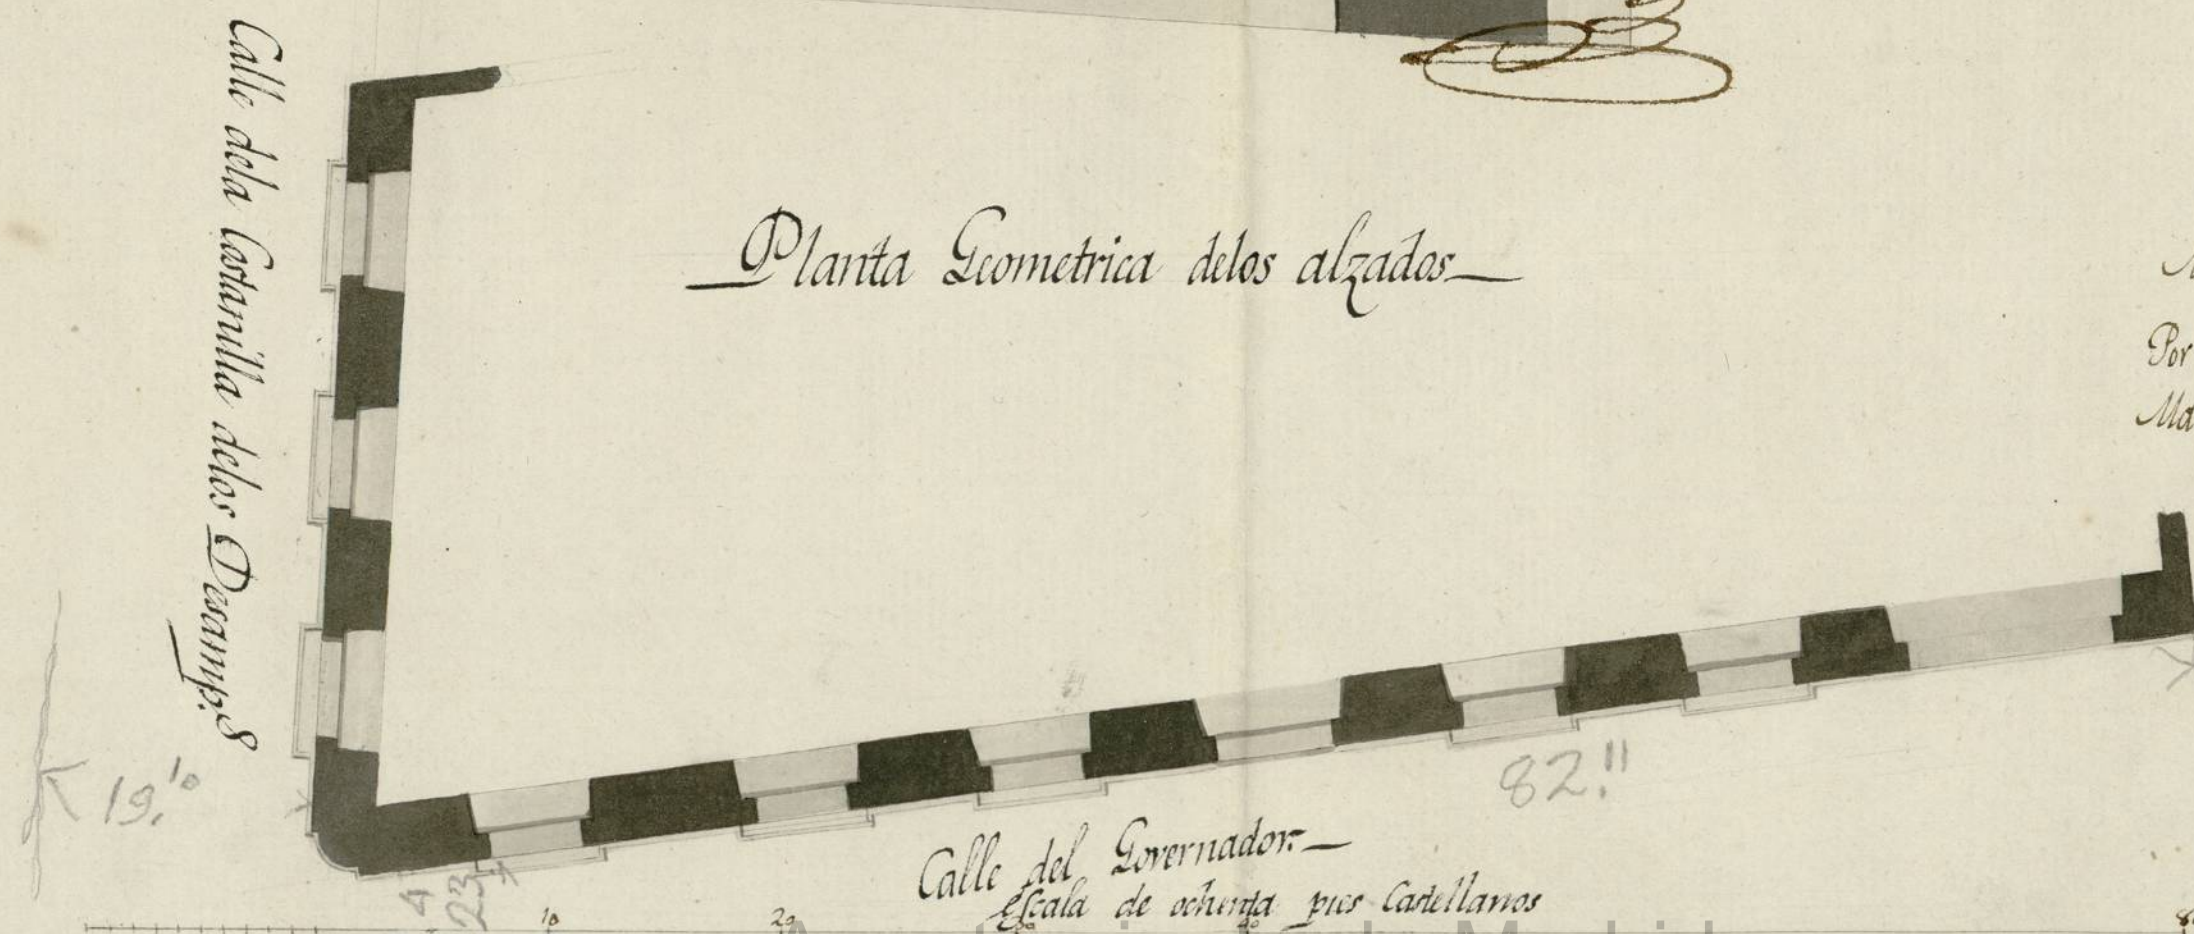 Calle dela Costanilla delos Desamp.s
Planta Geometrica delos alzados
Por
Ma
19.10
82.11
23
Calle del Governador.
Escala de ochenta pies Castellanos
10
20